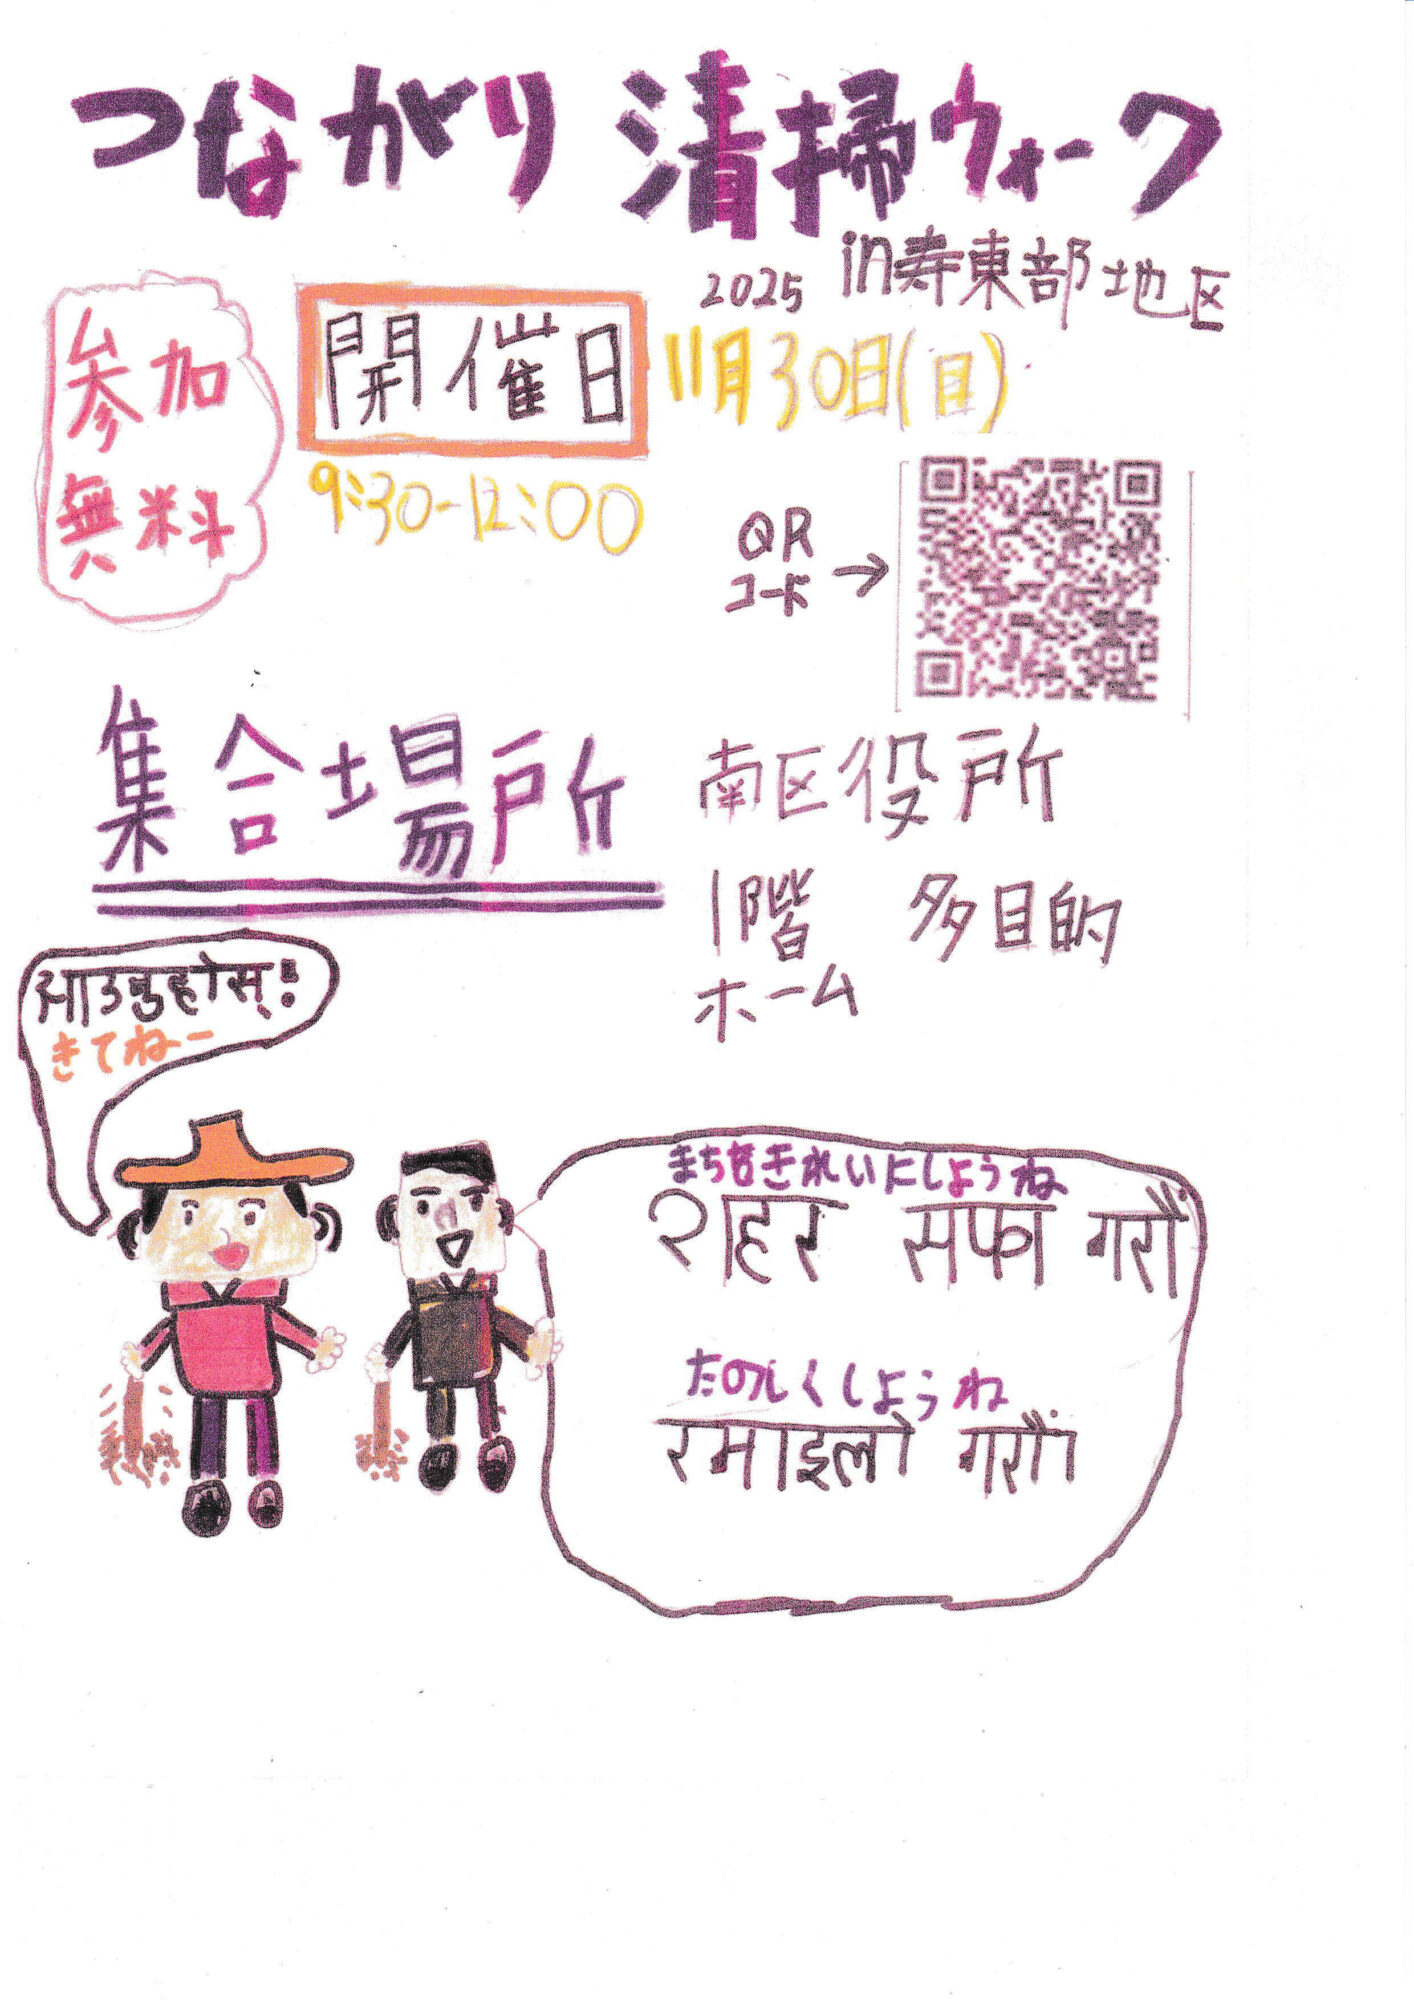 つながり清掃ウォーク
2025 in寿東部地区
参加
無料
開催日 11月30日(日)
9:30-12:00
QR
コード
→
集合場所
南区役所
1階 多目的
ホーム
आउनुहोस्!
きてねー
まちをきれいにしようね
शहर सफा गरौं
たのしくしようね
रमाइलो गरौं।